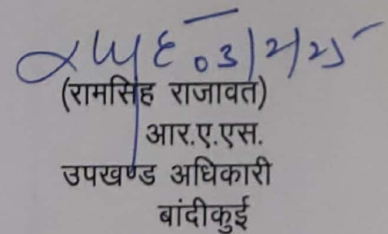 03/2/25
(रामसिंह राजावत)
आर.ए.एस.
उपखण्ड अधिकारी
बांदीकुई